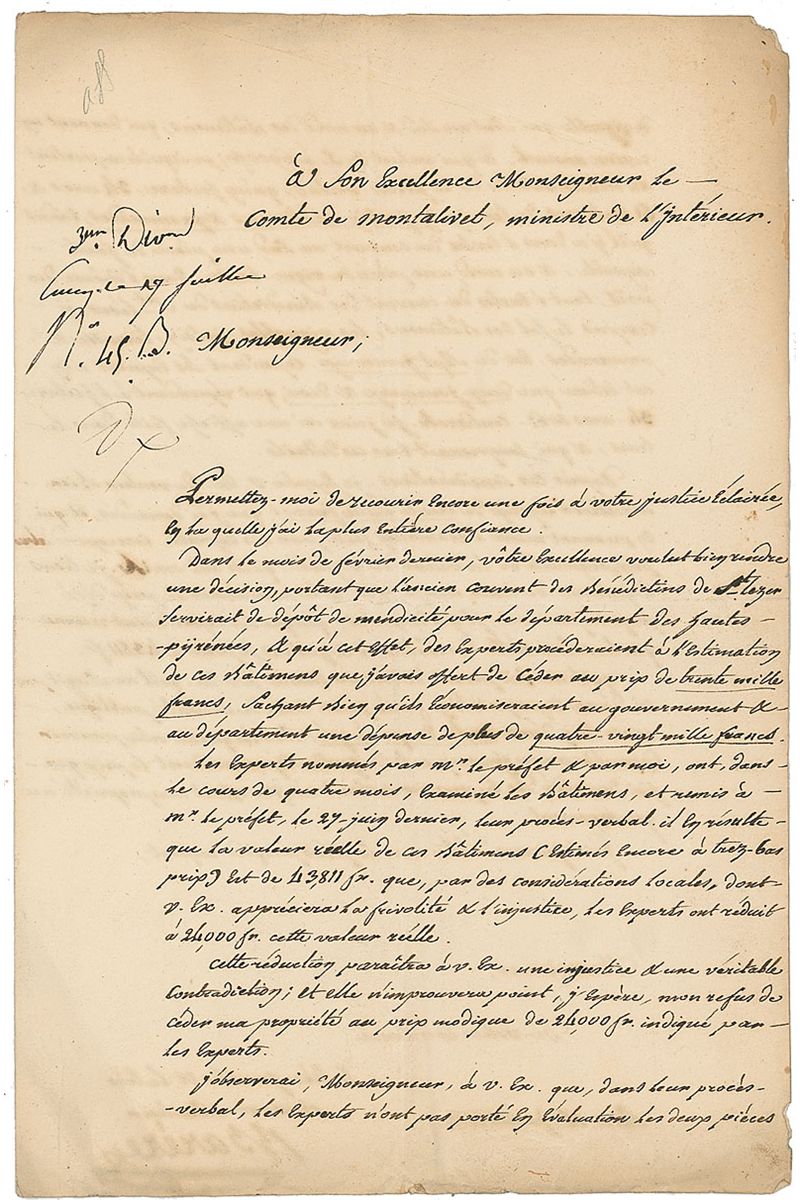 à Son Excellence Monseigneur le —
Comte de Montalivet, ministre de l'Intérieur.
3me Divon
le 17 Juillet
No. 45. B.
Monseigneur,
Permettez-moi de recourir encore une fois à votre justice éclairée,
en la quelle j'ai la plus entière confiance.
Dans le mois de février dernier, vôtre Excellence voulut bien rendre
une décision, portant que l'ancien couvent des Bénédictins de St. Lezer
servirait de dépôt de mendicité pour le département des hautes-
-pyrénées, & qu'à cet effet, des Experts procéderaient à l'Estimation
de ces Bâtimens que j'avais offert de céder au prix de trente mille
francs, sachant bien qu'ils économiseraient au gouvernement & —
au département une dépense de plus de quatre-vingt mille francs.
les Experts nommés par mr. le préfet & par moi, ont, dans —
le cours de quatre mois, examiné les Bâtimens, et remis à —
mr. le préfet, le 27 juin dernier, leur procès-verbal. il en résulte —
que la valeur réelle de ces Bâtimens (Estimés encore à trez-bas
prix) est de 43,811 fr. que, par des considérations locales, dont —
v. Ex. appréciera la frivolité & l'injustice, les Experts ont réduit
à 24,000 fr. cette valeur réelle.
cette réduction paraîtra à v. Ex. une injustice & une véritable
contradiction; et elle n'improuvera point, j'espère, mon refus de
céder ma propriété au prix modique de 24,000 fr. indiqué par —
les Experts.
j'observerai, Monseigneur, à v. Ex. que, dans leur procès-
-verbal, les Experts n'ont pas porté en évaluation les deux pièces